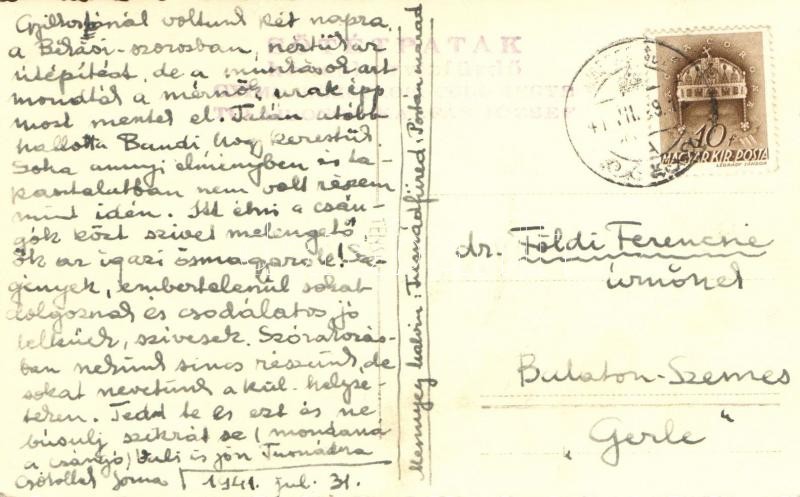 Gyilkostónál voltunk két napra
a Békási-szorosban, néztük az
útépítést, de a munkások azt
mondták a mérnök urak épp
most mentek el. Talán utóbb
hallotta Bandi, hogy kerestük.
Soha annyi élményben és ta-
pasztalatban nem volt részem
mint idén. Itt élni a csán-
gók közt szivet melengető
ők az igazi ősmagyarok! Sze-
gények, embertelenül sokat
dolgoznak és csodálatos jó
lelkűek, szivesek. Szórakozás-
ban nekünk sincs részünk, de
sokat nevetünk a kül. helyze-
teken. Tedd te is ezt és ne
búsulj szikrát se (mondaná
a csángó) is jön Tusnádra
Csókollak 1941. jul. 31.
Mennyey Kálvin: Tusnádfüred. Postán marad
SÖTÉTPATAK
JÓZSEF
41 VII.
10 f
MAGYAR KIR. POSTA
LÉGRÁDY SÁNDOR
dr. Földi Ferencné
úrnőnek
Balaton-Szemes
"Gerle"